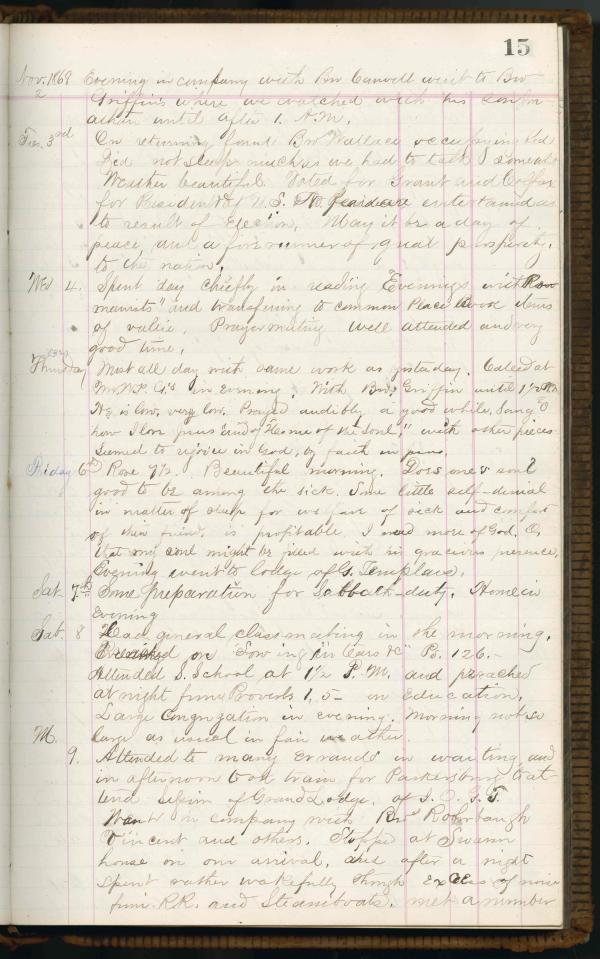 15
Nov. 1868 Evening in company with Bro Caswell went to Bro
2 Griffins where we watched with his son
until after 1. A.M.
Tue. 3rd On returning found Bro Wallace occupying bed
Did not sleep much as we had to talk I some
Weather beautiful. Voted for Grant and Colfax
for President & V U.S. entertained as
to result of Election, May it be a day of
peace, and a forerunner of great prosperity,
to the nation,
Wed 4. Spent day chiefly in reading "Evenings with Ro
manists" and transfering to common Place Book items
of value. Prayermeeting well attended and very
good time,
Thursday Most all day with same work as yesterday. Called at
Mr. W.P. G's in Evening. With Bro. Griffin until 1 1/2
He is low, very low. Prayed audibly a good while, Sang "O
how I love Jesus" and "Home of the Soul," with other pieces
Seemed to rejoice in God, by faith in
Friday 6th Rose 7 1/2. Beautiful morning. Does ones soul
good to be among the sick. Some little self-denial
in matter of sleep for welfare of sick and comfort
of their friends is profitable. I need more of God. O,
that my soul might be filled with his gracious presence,
Evening went to lodge of G. Templars.
Sat. 7th Some preparation for Sabbath-duty. Home in
Evening
Sab. 8 Had general classmeeting in the morning.
Preached on "Sowing in tears &c" Ps. 126. -
Attended S. School at 1 1/2 P. M. and preached
at night from Proverbs 1, 5- on Education.
Large Congregation in evening. Morning not so
M. large as usual in fair weather.
9. Attended to many Errands in waiting, and
in afternoon took train for Parkersburg to at
tend Session of Grand Lodge. of I. O. G. T.
Went in company with Bro Rohrbaugh
Vincent and others. Stopped at Swann
house on our arrival, and after a night
spent rather wakefully though Excess of noise
from R.R. and Steamboats. met a number